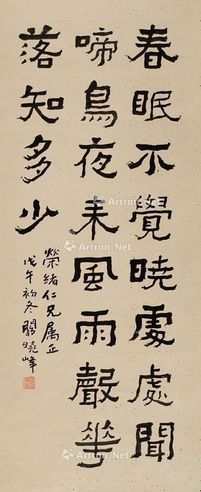 春眠不覺曉處處聞
啼鳥夜來風雨聲花
落知多少
榮緒仁兄属正
戊午初冬關曉峰
Artron.Net